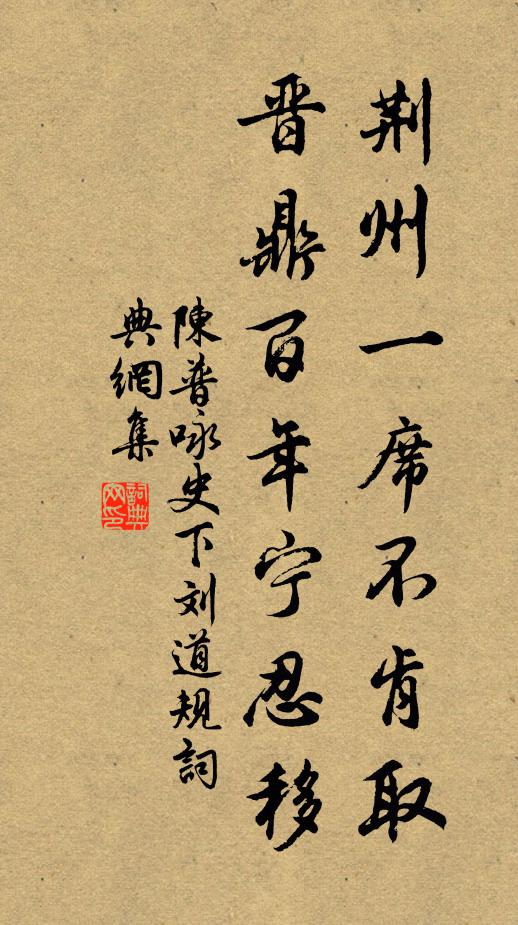 荆州一席不肯取
晋鼎百年宁忍移
陳普咏史下刘道规詞
典網集
詞典
网印